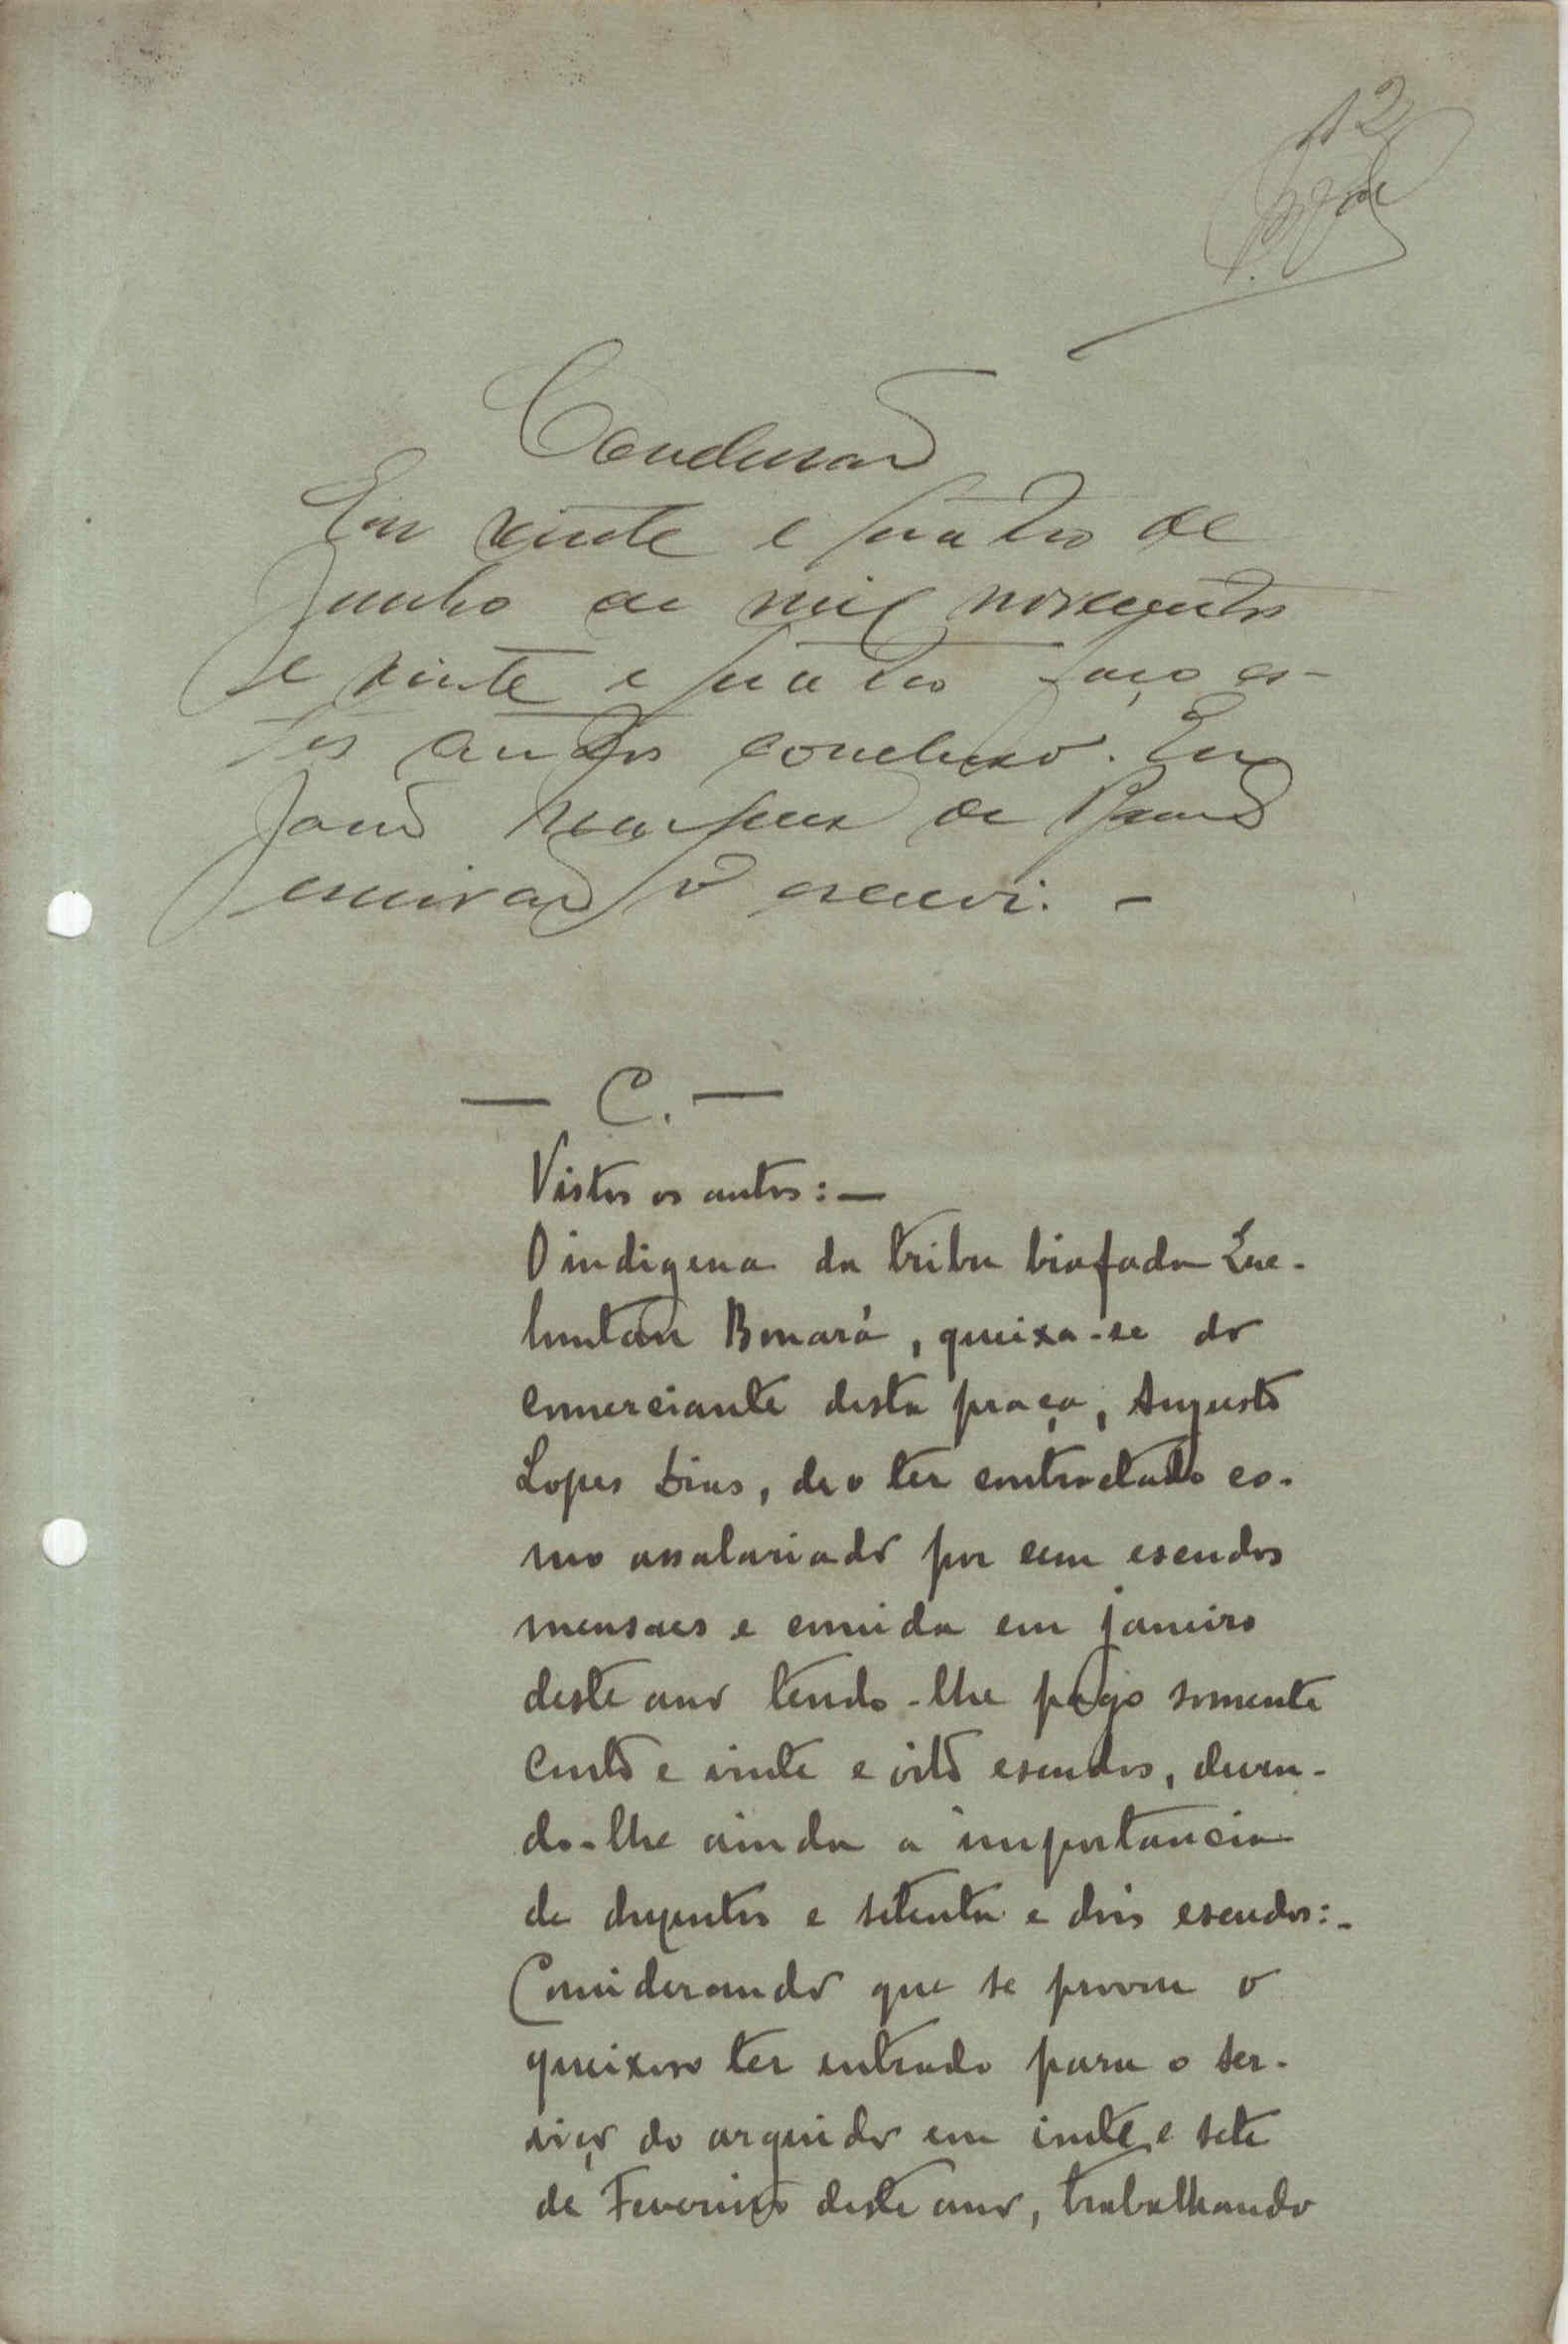 12
Conclusão
Em vinte e quatro de
Junho de mil novecentos
e vinte e quatro faço es-
tes autos concluso. Eu
João Marques de Barros
escrivão o escrevi. -
— C. —
Vistos os autos: —
O indigena da tribu biafada
Bonará, queixa-se do
comerciante desta praça, Augusto
Lopes Dias, de o ter contractado co-
mo assalariado por cem escudos
mensaes e comida em janeiro
deste ano tendo-lhe pago somente
cento e vinte e oito escudos, deven-
do-lhe ainda a importancia
de duzentos e setenta e dois escudos:-
Considerando que se provou o
queixoso ter entrado para o ser-
viço do arguido em vinte e sete
de Fevereiro deste ano, trabalhando